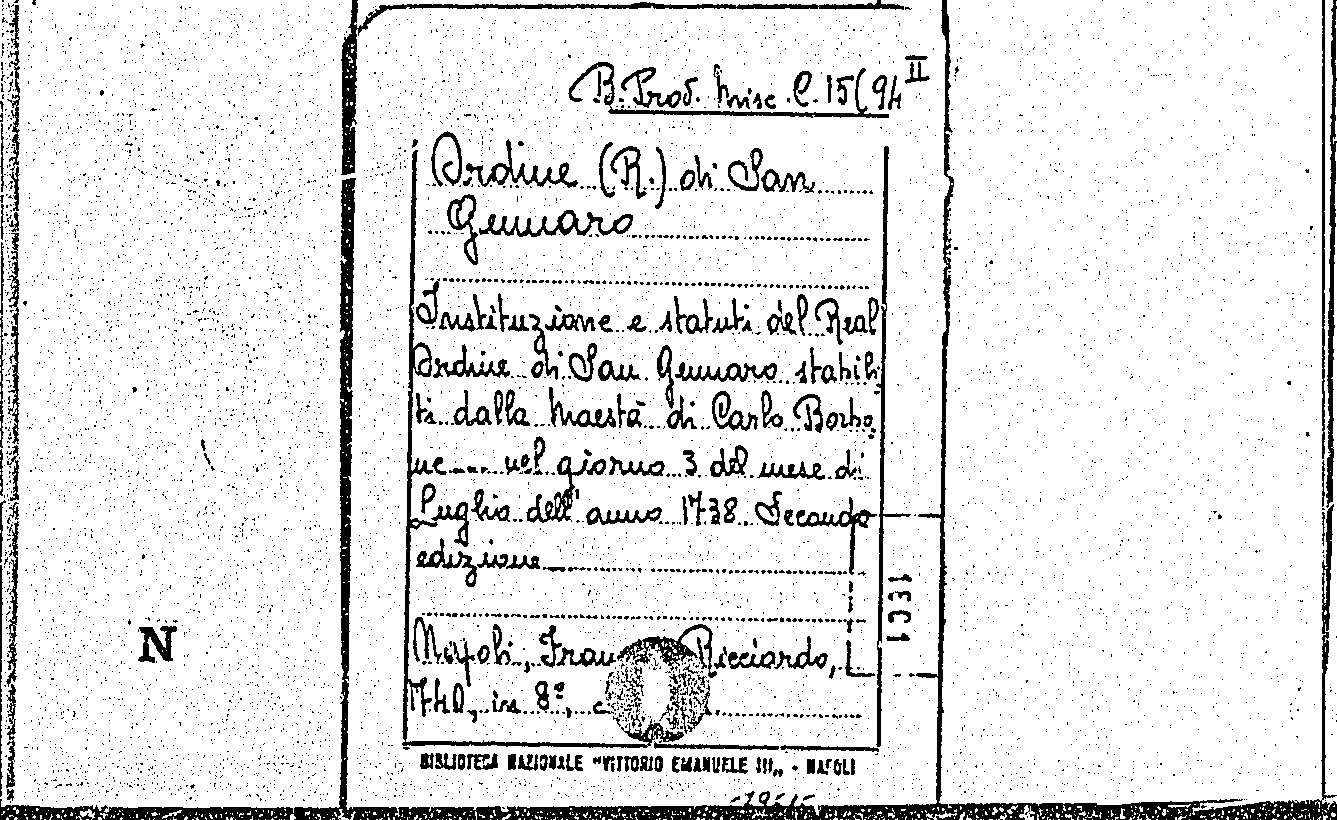 B. Prov. Misc. C. 15(94 II
Ordine (R.) di San
Gennaro
Instituzione e statuti del Real
Ordine di San Gennaro stabili
ti dalla Maestà di Carlo Borbo
ne --- nel giorno 3 del mese di
Luglio dell'anno 1738. Seconda
edizione
1301
N
Napoli, Ricciardo,
1740, in 8º,
BIBLIOTECA NAZIONALE "VITTORIO EMANUELE III„ - NAPOLI